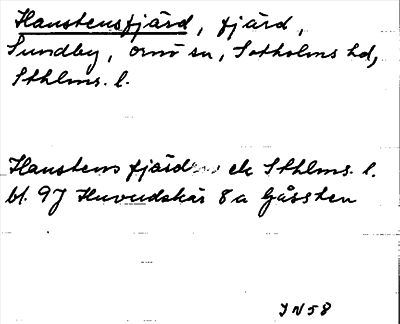 Hanstensfjärd, fjärd,
Sundby, Ornö sn, Sotholms hd,
Sthlms. l.
Hanstens fjärden ek Sthlms. l.
bl. 97 Huvudskär 8a Gåssten
JN58